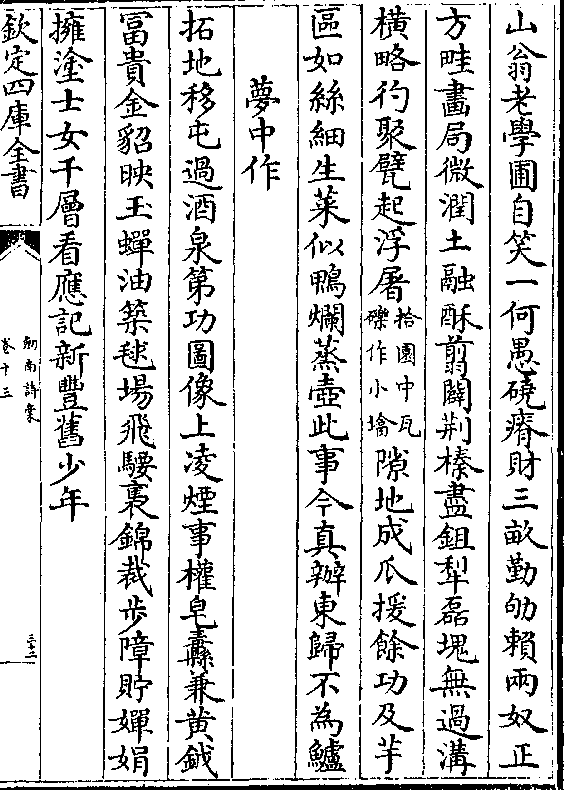 山翁老學圃自笑一何愚磽瘠財三畝勤劬賴兩奴正
方畦畫局微潤土融酥翦闢荆榛盡鉏犁磊塊無過溝
橫略彴聚甓起浮屠拾園中瓦礫作小墖隙地成瓜援餘功及芋
區如絲細生菜似鴨爛蒸壺此事今真辦東歸不為鱸
夢中作
拓地移屯過酒泉第功圖像上凌煙事權皂纛兼黄鉞
冨貴金貂映玉蟬油築毬場飛騕褭錦裁步障貯嬋娟
擁塗士女千層看應記新豐舊少年
欽定四庫全書
劍南詩稾
卷十三
三十二